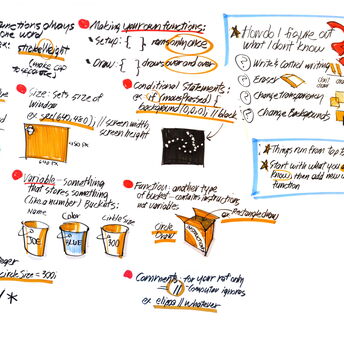 Functions always
one word
ex: strokeWeight
(make cap
to separate)
Making your own functions:
Setup: { } runs only once
Draw: { } draws over and over
How do I figure out
what I don't know?
Write & control writing
Eraser
Change transparency
Change Backgrounds
Size: sets size of
window
ex: size(640,480); // screen width,
screen height
450 px
640 px
Conditional Statements:
ex: if (mousePressed) {
background (0,0,0); // black
Things run from top to
Start with what you
know, then add new
function
Variable - something
that stores something
(like a number) Buckets:
Name
Color
Circle Size
JOE
BLUE
300
Function: another type
of bucket - contains instructions,
not variables.
Circle
Draw
or Rectangle draw
circle size = 300;
Comments: for your ref only
// computer ignores
ex. ellipse // whatever
/*